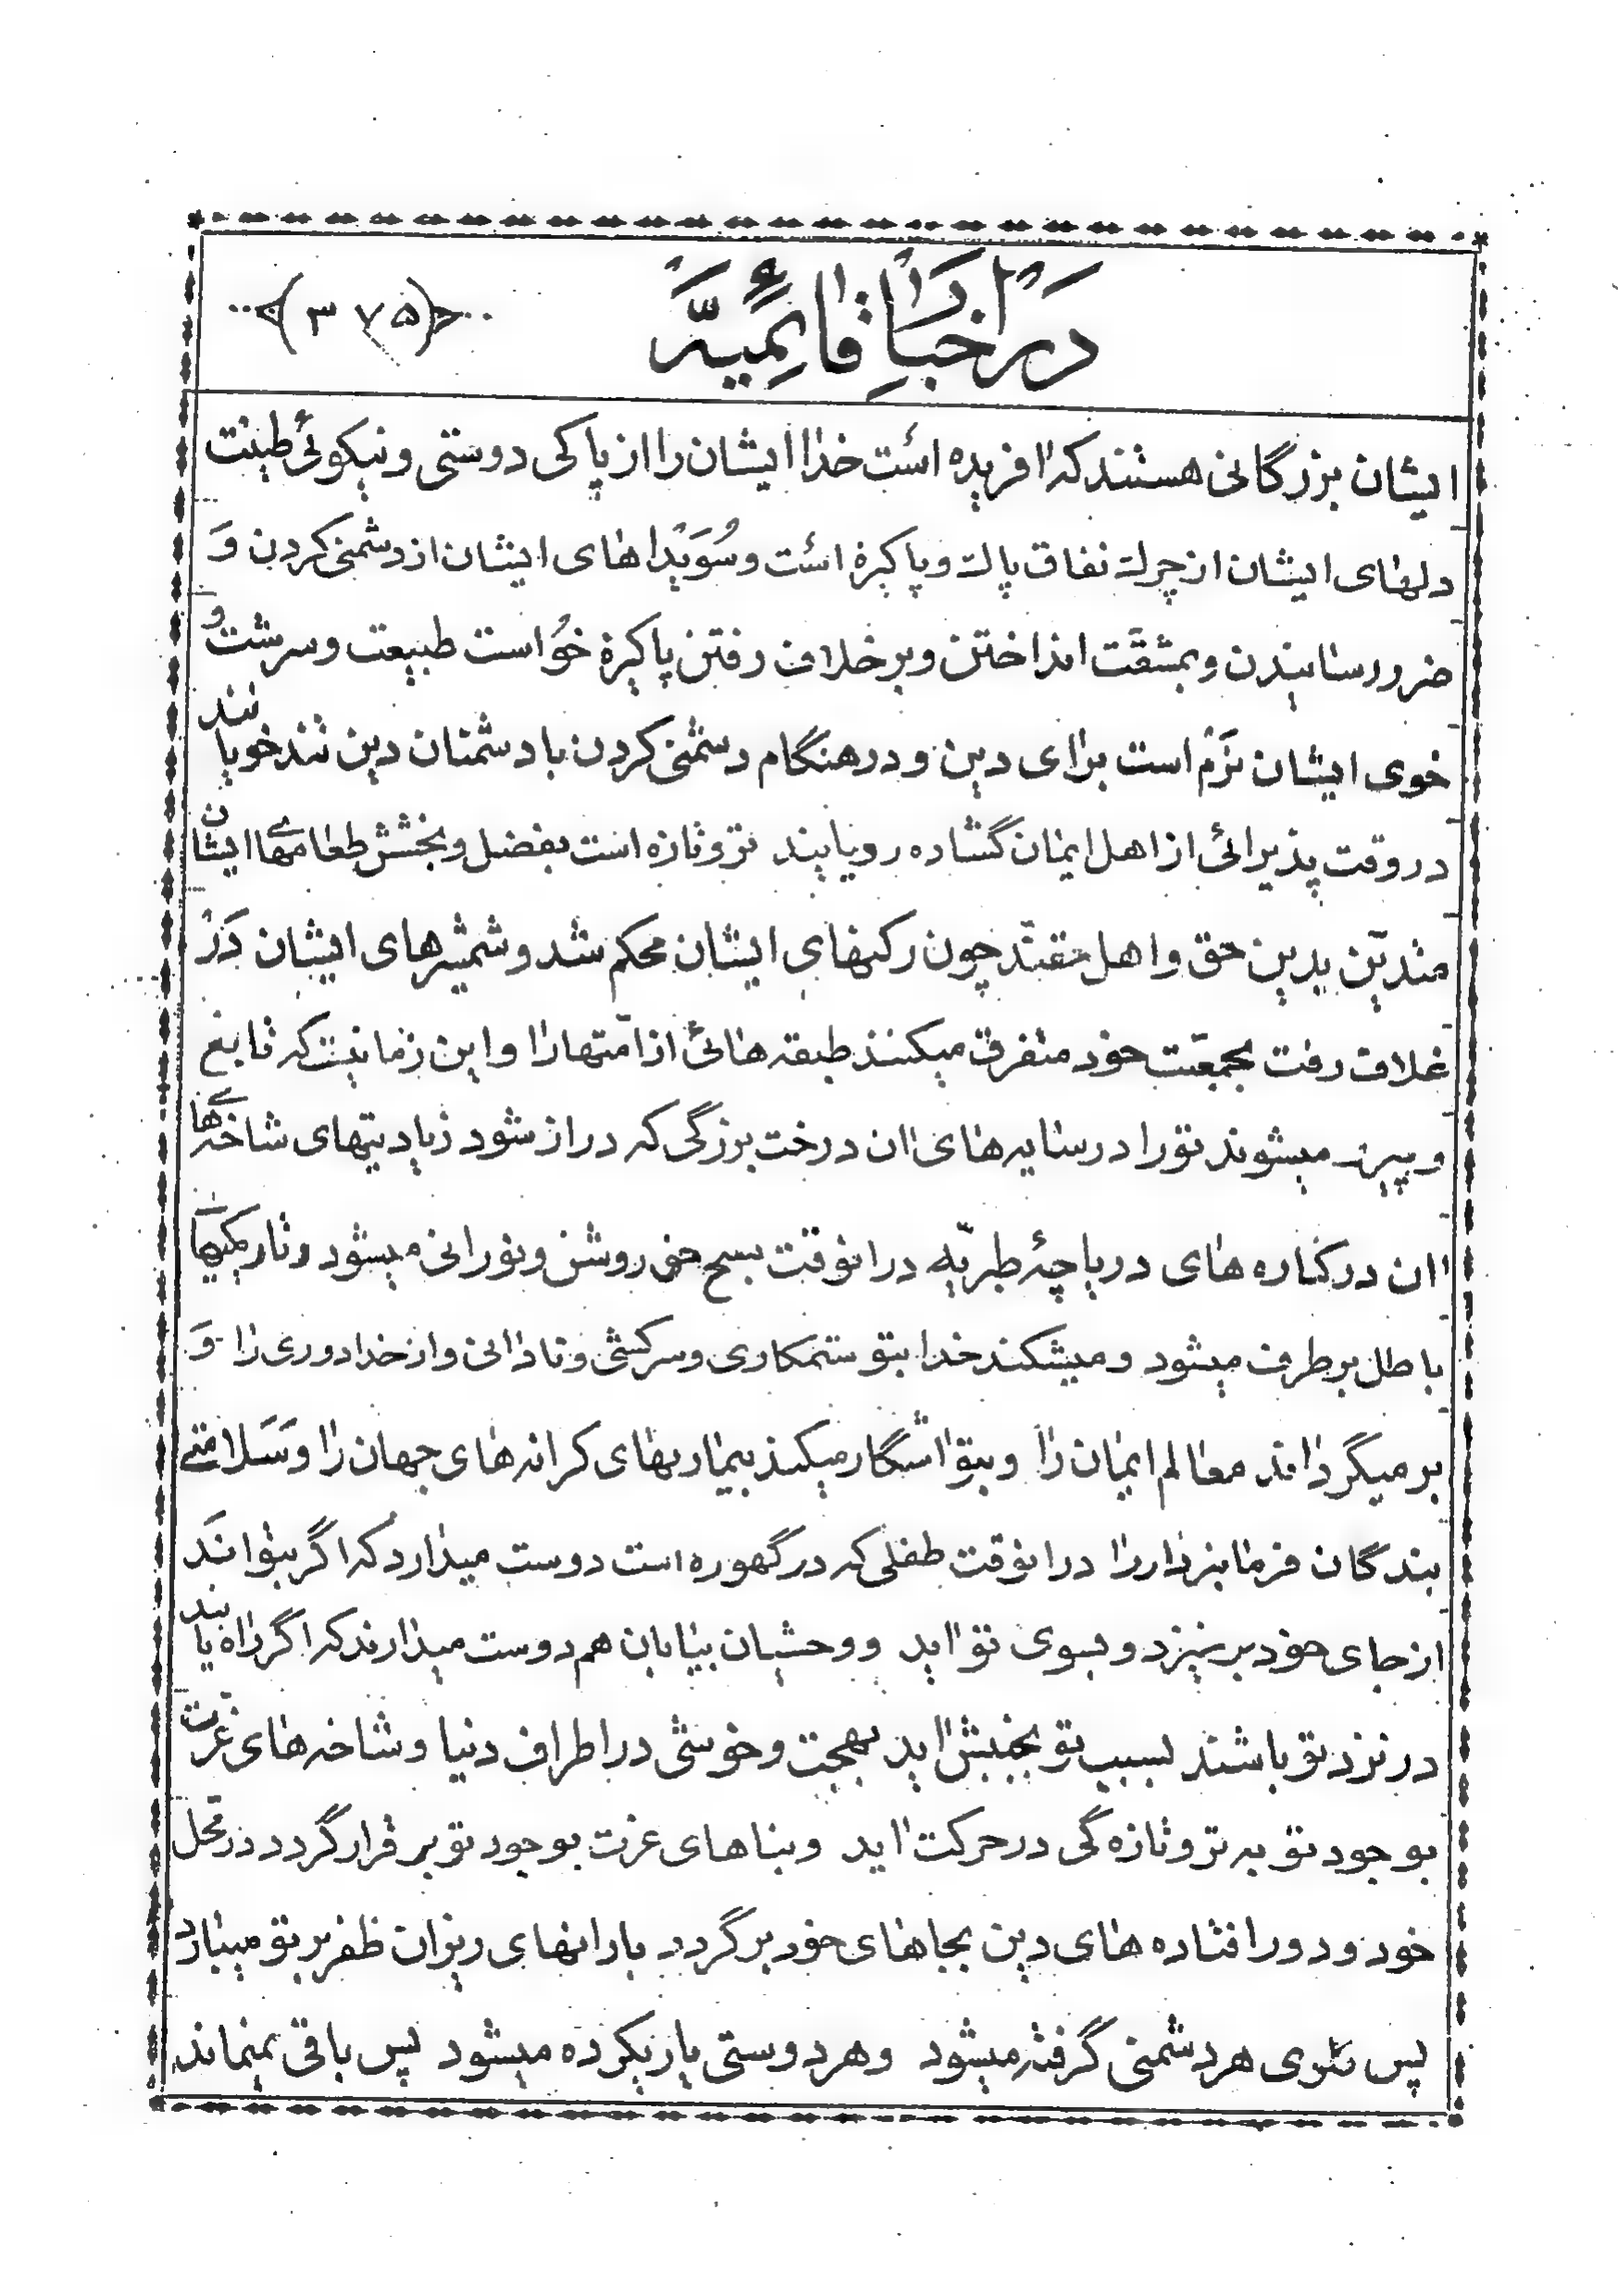 در اخبار قائمیه
(۳۷۵)
ایشان بزرگانی هستند که افریده است خدا ایشان را از پاکی دوستی و نیکوئی طینت
دلهای ایشان از چرک نفاق پاک و پاکیزه است و سویداهای ایشان از دشمنی کردن و
ضرر رسانیدن و بمشقّت انداختن و بر خلاف رفتن پاکیزه خو است طبیعت و سرشت و
خوی ایشان نرم است برای دین و در هنگام دشمنی کردن با دشمنان دین تند خویانند
در وقت پذیرائی از اهل ایمان گشاده رویانند تر و تازه است بفضل و بخشش طعامهای ایشان
متدیّن بدین حق و اهل حقند چون رکنهای ایشان محکم شد و شمشیرهای ایشان در
غلاف رفت بجمعیّت خود متفرق میکنند طبقه هائی از امّتها را و این زمانیست که تابع
و پیرو میشوند تو را در سایه های ان درخت بزرگی که دراز شود زیادیتهای شاخه های
ان در کناره های دریاچۀ طبریّه در انوقت صبح حق روشن و نورانی میشود و تاریکیهای
باطل بر طرف میشود و میشکند خدا بتو ستمکاری و سرکشی و نادانی و از خدا دوری را و
بر میگرداند معالم ایمان را و بتو اشگار میکند بیماریهای کرانه های جهان را و سلامتی
بندگان فرمانبردار را در انوقت طفلی که در گهوره است دوست میدارد که اگر بتواند
از جای خود برخیزد و بسوی تو اید و وحشیان بیابان هم دوست میدارند که اگر راه یابند
در نزد تو باشند بسبب تو بجنبش اید بهجت و خوشی در اطراف دنیا و شاخه های عزّت
بوجود تو به تر و تازه گی در حرکت اید و بناهای عزت بوجود تو بر قرار گردد در محل
خود و دور افتاده های دین بجاهای خود بر گردد بارانهای ریزان ظفر بر تو میبارد
پس گلوی هر دشمنی گرفته میشود و هر دوستی یاری کرده میشود پس باقی نمیماند